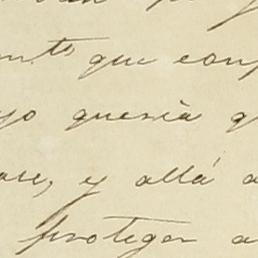 que conf
yo queria q
ase, y allá a
proteger a